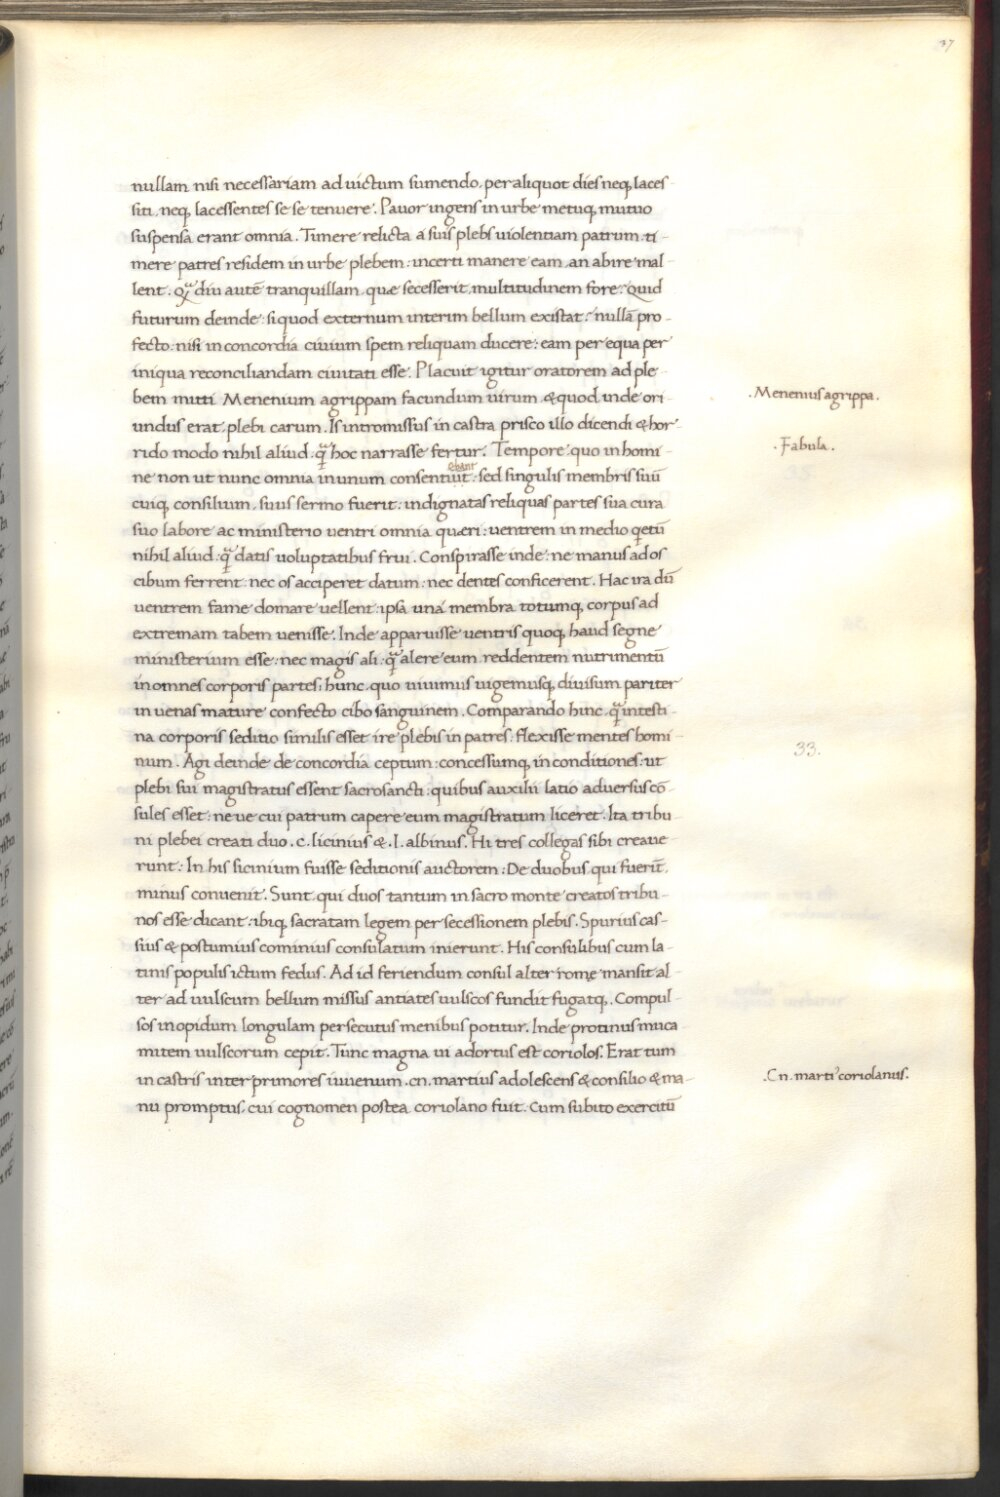 37
nullam nisi necessariam ad uictum sumendo. per aliquot dies neq; laces-
siti. neq; lacessentes se se tenuere. Pauor ingens in urbe metuq; mutuo
suspensa erant omnia. Timere relicta a suis plebs uiolentiam patrum. ti-
mere patres residem in urbe plebem: incerti manere eam an abire mal-
lent. Qͣ diu autē tranquillam quæ secesserit multitudinem fore? Quid
futurum deinde: si quod externum interim bellum existat? nullā pro-
fecto: nisi in concordia ciuium spem reliquam ducere: eam per equa per
iniqua reconciliandam ciuitati esse. Placuit igitur oratorem ad ple
bem mitti Menenium agrippam facundum uirum & quod inde ori-
undus erat plebi carum. Is intromissus in castra prisco illo dicendi & hor-
rido modo nihil aliud qͣ hoc narrasse fertur. Tempore quo in homi-
ne non ut nunc omnia in unum consentiūt: sed singulis membris suū
ebant
cuiq; consilium. suus sermo fuerit: indignatas reliquas partes sua cura
suo labore ac ministerio uentri omnia quæri: uentrem in medio q̣etū
nihil aliud qͣ datis uoluptatibus frui. Conspirasse inde: ne manus ad os
cibum ferrent: nec os acciperet datum: nec dentes conficerent. Hac ira dū
uentrem fame domare uellent: ipsa una membra totumq; corpus ad
extremam tabem uenisse. Inde apparuisse uentris quoq; haud segne
ministerium esse: nec magis ali: qͣ alere eum reddentem nutrimentū
in omnes corporis partes: hunc quo uiuimus uigemusq; diuisum pariter
in uenas mature confecto cibo sanguinem. Comparando hinc qͣ intesti-
na corporis seditio similis esset ire plebis in patres. flexisse mentes homi-
num. Agi deinde de concordia ceptum: concessumq; in conditiones: ut
plebi sui magistratus essent sacrosancti: quibus auxilii latio aduersus cō-
sules esset: neue cui patrum capere eum magistratum liceret. Ita tribu-
ni plebei creati duo. c. licinius &. l. albinus. Hi tres collegas sibi creaue-
runt. In his sicinium fuisse seditionis auctorem: De duobus qui fuerīt.
minus conuenit. Sunt qui duos tantum in sacro monte creatos tribu-
nos esse dicant: ibiq; sacratam legem per secessionem plebis. Spurius cas-
sius & postumius cominius consulatum inierunt. His consulibus cum la-
tinis populis ictum fedus. Ad id feriendum consul alter romę mansit. al-
ter ad uulscum bellum missus antiates uulscos fundit fugatq;. Compul-
sos in opidum longulam persecutus menibus potitur. Inde protinus muca-
mitem uulscorum cepit. Tunc magna ui adortus est coriolos. Erat tum
in castris inter primores iuuenum. cn. martius adolescens & consilio & ma-
nu promptus. cui cognomen postea coriolano fuit. Cum subito exercitū
.Menenius agrippa.
.Fabula.
33.
.Cn. marti' coriolanus.